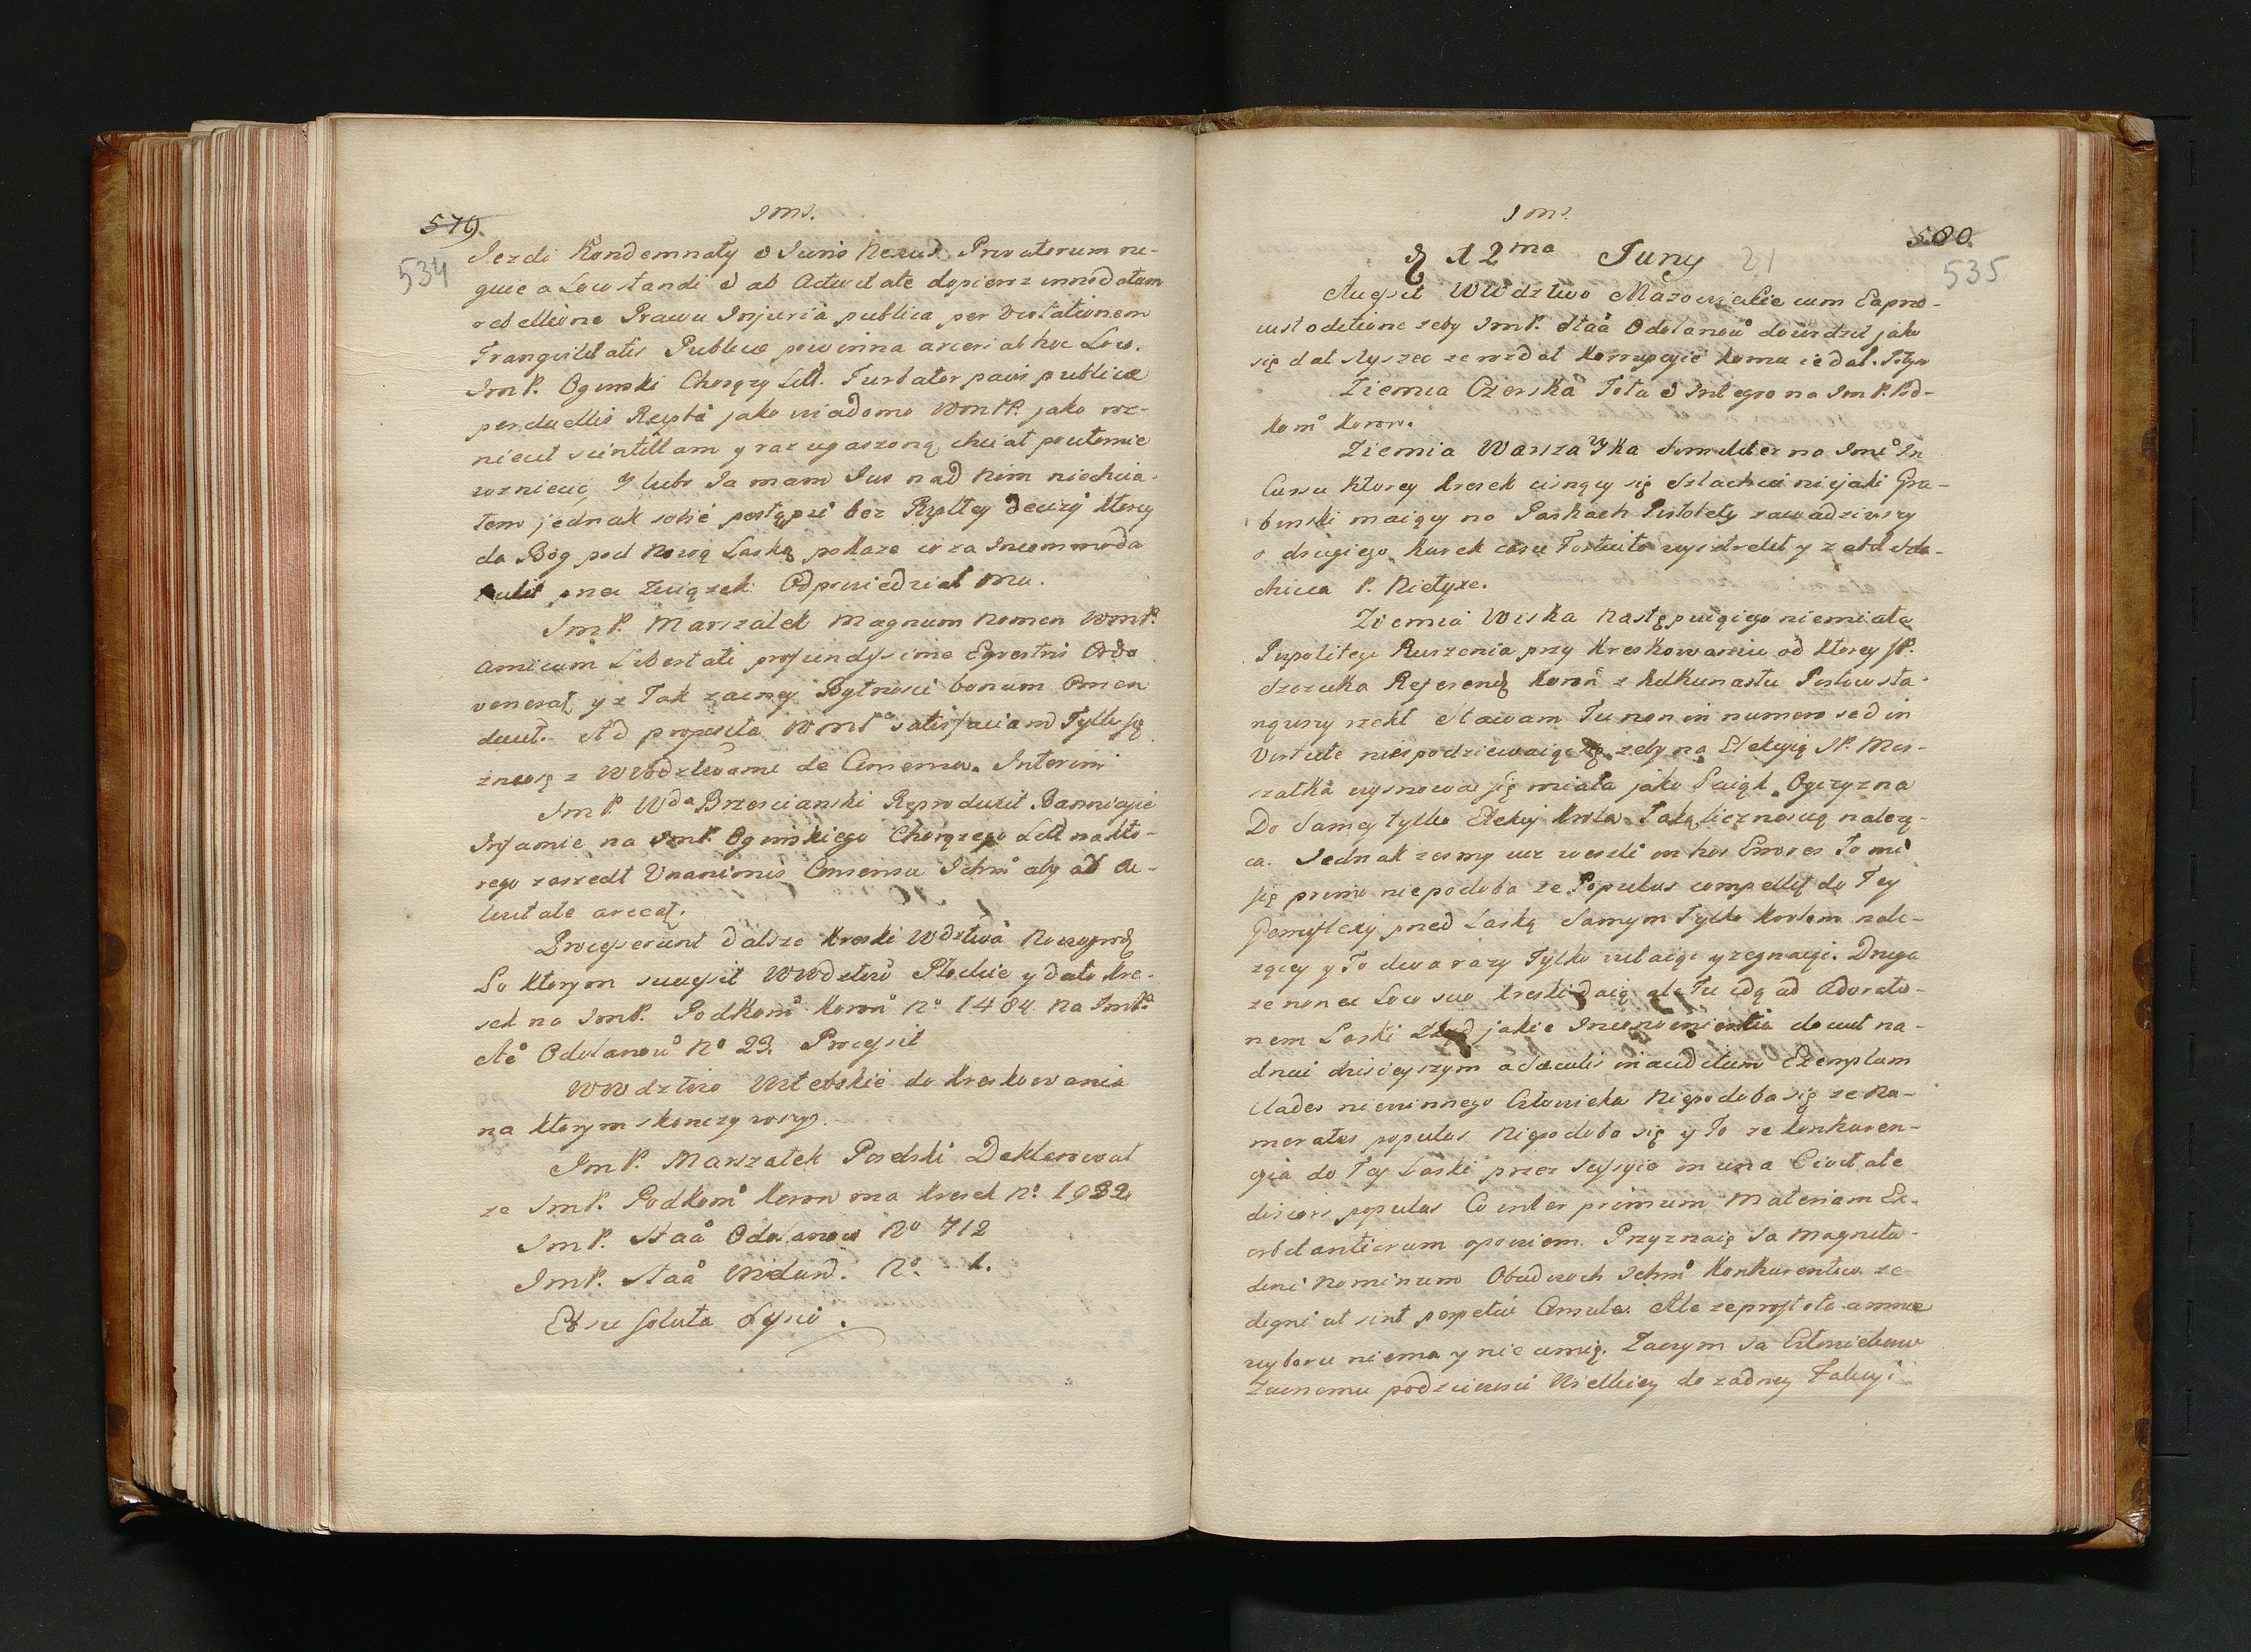 579.
534
Jezdi Kondemnaty & Juris nexus Privatorum ne-
quie a Loco standi & ab Activitate dopieroz innodatum
rebellione Prawu Injuria publica per violationem
Tranquilitatis Publicæ powinna arceri ab hoc Loco.
ImP. Oginski Chorązy Litt. Turbator pacis publicæ
perduellis Rzptæ jako wiadomo WmPP. jako
niecił scintillam y raz ugaszoną chciał powtornie
wzniecić, y lubo Ja mam Jus nad Nim niechcia-
łem jednak sobie postąpić bez Rzpltey Decizyi ktorey
da Bóg pod Nową Laską pokaze co za Incommoda
tulit przez Związek. Odpowiedział mu.
ImP. Marszałek Magnum Nomen WmP.
Amicum Libertati profundissime Equestris Ordo
venerat y z Tak zacney Bytnosci bonum Omen
ducit. Ad proposita WmP satisfaciam Tylko się
zniosę z WWdztwami de Consensu. Interim
ImP. Wda Brzescianski Reprodukit Bannicyie
Infamie na ImP. Oginskiego Chorązego Litt na kto-
rego zaszedł Unanimis Consensus Ichm aby ab Ac-
tivitate arceat.
Processerunt dalsze Kreski Wdztwa Nowogrod
Po ktorym successit WWdztwo Płockie y dało kre-
sek na ImP. Podkom Koron No 1484. Na ImP.
Sta Odolanow No 23. Processit
WWdztwo Witebskie do kreskowania
na ktorym skonczywszy.
ImP. Marszałek Poselski Deklarował
ze ImP. Podkom Koron ma kresek No. 1932
ImP. Staa Odolanow No 712
ImP. Staa Wieluń. No. 1.
Et sic soluta Sessio.
Ims.
580
535
D 12ma Juny 21
Accessit WWdztwo Mazowieckie cum Ea præ-
custoditione zeby ImP. Staa Odolanow dowiodził jako
się dał słyszec ze rozdał Korrupcyie komu ie dał.
Ziemia Czerska Tota & Integra na ImP. Pod-
kom Koron.
Ziemia Warszawska similiter na Imci In
Cursu ktorey kresek cisnący się Szlachcic niejaki Gra-
binski maiący na Paskach Pistolety zawadziwszy
o drugiego kurek casu Fortuito wystrelił y zabił Szla-
chcica P. Nietyxe.
Ziemia Wiska Następuiącego niemiała
Pospolitego Ruszenia przy Kreskowaniu od ktorey JP.
Szczuka Referend Koron z kilkunastu Posłow sta-
nąwszy rzekł Stawam Tu non in numero sed in
Virtute niespodziewaiąc się zeby na Elekcyią JP. Mar-
szałka wysnować się miała jako Saiąk Oyczyzna
Do Samey tylko Elekcyi Krola Taką licznoscią nalezą-
ca. Jednak zesmy iuz weszli in hos Errores To mi
się primo niepodoba ze Populus compellit do Tey
Genuflexy przed Laską Samym Tylko Krolom nale-
zącey y To dwa razy Tylko witaiąc y zegnaiąc. Druga
ze non ex Loco suo kreski daią ale Tu idą ad Adoratio-
nem Laski Ztąd jakie Inconvenientia docuit na-
dniu dzisieyszym a sæculis inauditum Exemplum
Clades niewinnego Człowieka Niepodoba się ze Nu-
meratur populus Niepodoba się y To ze konkuren-
cyia do Tey Laski przez scissyie in una Civitate
discors populus Co inter primum Materiam Ex-
orbitantiarum oponiem. Przyznaię Ja Magnitu-
dini Nominum Obudwoch Ichm Konkurentow ze
digni ut sint perpetui Consules. Ale ze prosto to a mnie
wyboru niema y nie umię. Zaczym Ja Człowiekowi
Zacnemu podsciwosci Wielkiey do zadney Fakcyi